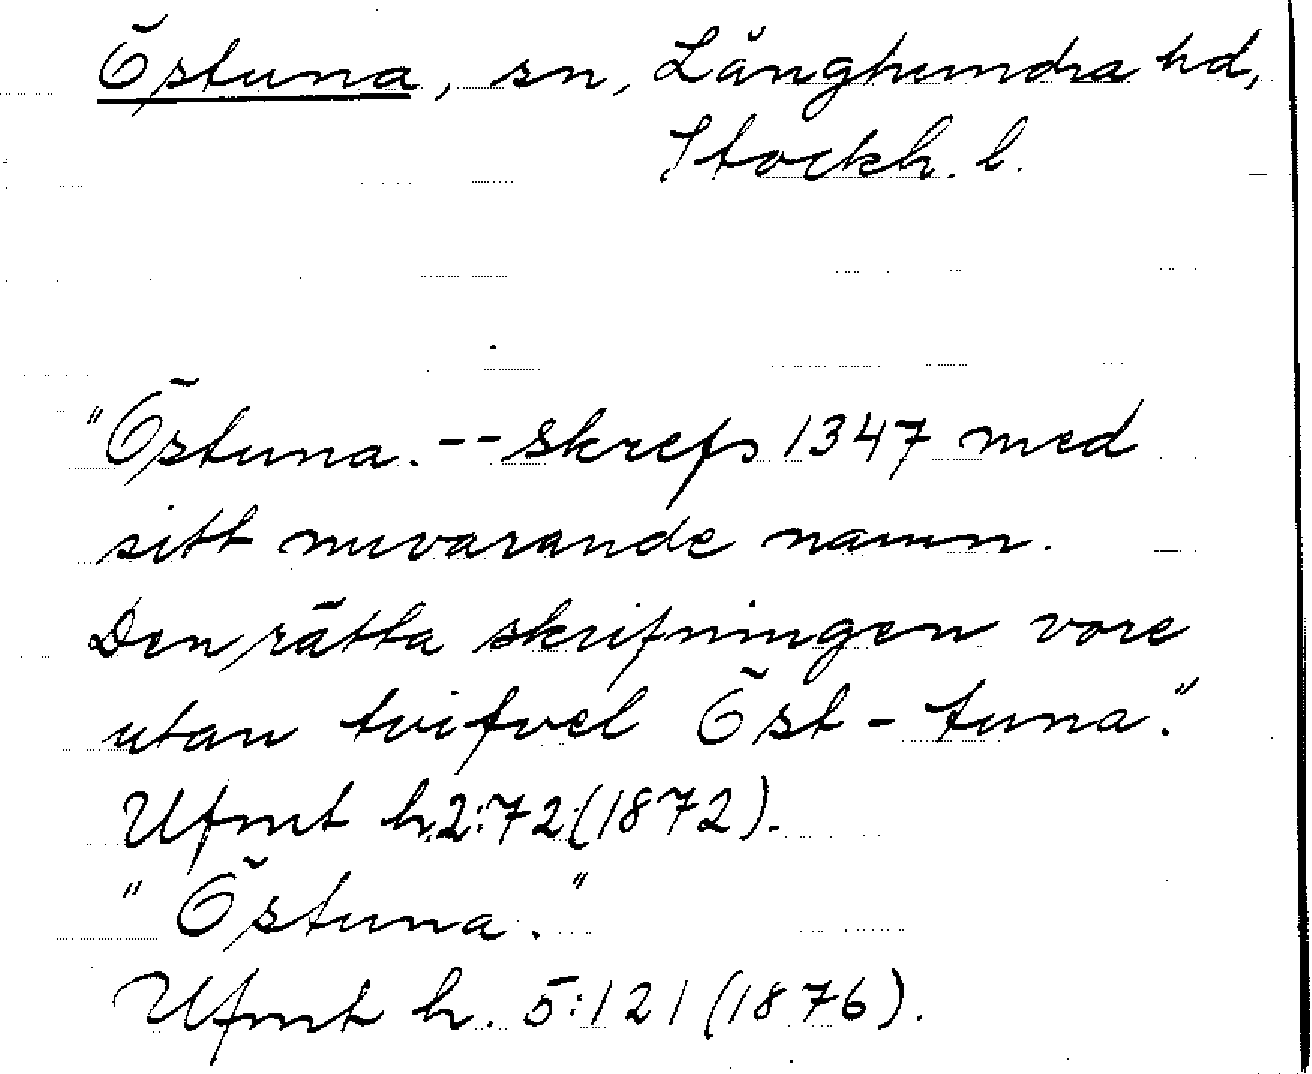 Östuna, sn, Långhundra hd,
Stockh. l.
"Östuna. -- skrefs 1347 med
sitt nuvarande namn.
Den rätta skrifningen vore
utan tvifvel Öst-tuna."
Ufmt h. 2:72 (1872).
"Östuna."
Ufmt h. 5:121 (1876).